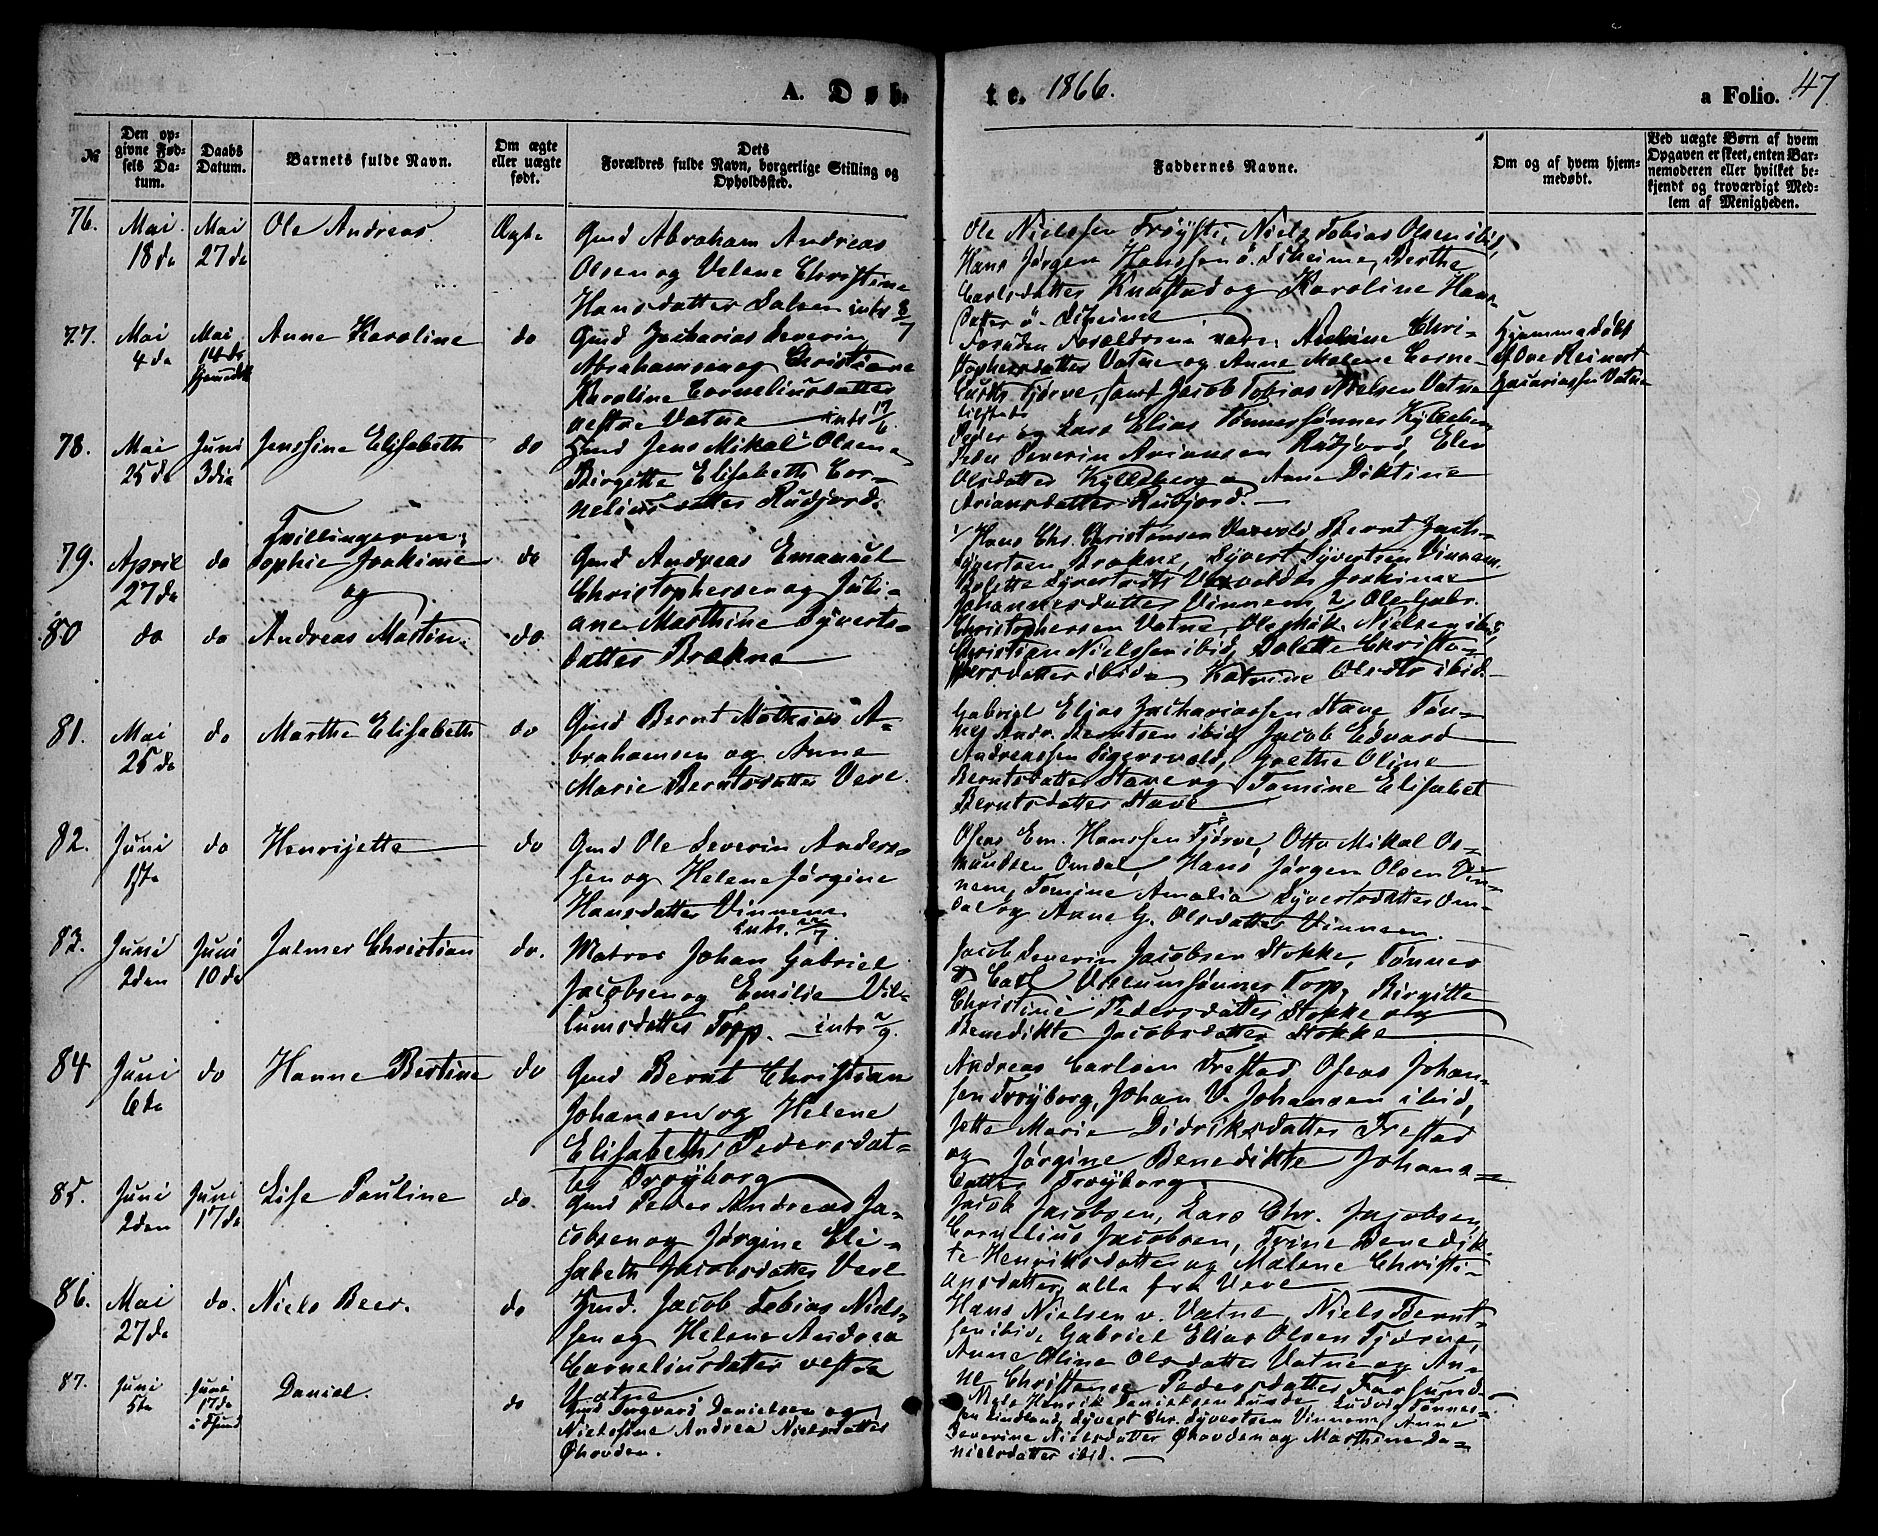 A. Døb-
te. 1866.
a Folio. 47
№
Den op-
givne Fød-
sels Da-
tum.
Daabs
Datum.
Barnets fulde Navn.
Om ægte
eller uægte
født.
Dets
Forældres fulde Navn, borgerlige Stilling og
Opholdssted.
Faddernes Navne.
Om og af hvem hjem-
medøbt.
Ved uægte Børn af hvem
Opgaven er skeet, enten Bar-
nemoderen eller hvilket be-
kjendt og troværdigt Med-
lem af Menigheden.
76.
Mai
18de
Mai
27de
Ole Andreas
Ægte
Gmd Abraham Andreas
Olsen og Velene Christine
Hansdatter
Ole Nielsen Niels Tobias Olsen ibid,
Hans Jørgen Hanssen ö. Berthe
Carlsdatter og Karoline Hans-
datter ö.
77.
Mai
4de
Mai
14de
Anne Karoline
do
Gmd Zacharias Severin
Abrahamsen og Christiane
Karoline Corneliusdatter
vestre Vatne
Foruden Forældrene vare: Chri-
stophersdatter Vatne og Anne Malene Corne-
Tjørve, samt Jacob Tobias Nielsen Vatne
Hjemmedøbt
af Ove Reinert
Zacariassen Vatne
78.
Mai
25de
Juni
3die
Jensine Elisabeth
do
Gmd Jens Mikal Olsen og
Birgitte Elisabeth Cor-
neliusdatter Rudjord.
Peder og Lars Elias Tønnessønner
Peder Severin Ariansen Rudjord, Elen
Olsdatter og Anne Diktine
Ariansdatter Rudjord.
79.
April
27de
do
Tvillingerne:
Sophie Joakime
og
do
Gmd Andreas Emanuel
Christophersen og Juli-
ane Marthine Syverts-
datter Brækne
1, Hans Chr. Christensen Bernt Zach-
Brækne, Syvert Syvertsen Vinnem,
Joakime
Johannesdatter Vinnem 2, Ole Gabr.
80
do
do
Andreas Martin.
do
Christophersen Vatne, Nielsen ibid,
Christian Nielsen ibid, Christo-
phersdatter ibid og Olsdtr ibid.
81.
Mai
25de
do
Marthe Elisabeth
do
Gmd Bernt Mathias A-
brahamsen og Anne
Marie Berntsdatter Vere
Gabriel Elias Zachariassen Stave, Tøn-
nes Andr. Berntsen ibid, Jacob Edvard
Andreassen Grethe Oline
Berntsdatter Stave og Tomine Elisabet
Berntsdatter Stave
82.
Juni
1ste
do
Henrijette
do
Gmd Ole Severin Anders-
sen og Helene Jørgine
Hansdatter Vinnem.
Oseas Em. Hanssen Tjørve, Otto Mikal Os-
mundsen Omdal, Hans Jørgen Olsen Vin-
nem, Tomine Amalia Syvertsdatter Om-
dal og Anne G. Olsdatter Vinnem.
83.
Juni
2den
Juni
10de
Jalmer Christian
do.
Matros Johan Gabriel
Jacobsen og Emilie Vil-
lumsdatter Topp.
Jacob Severin Jacobsen Stokke, Tønnes
& Carl Villumsønner Topp, Birgitte
Christine Pedersdatter Stokke og
Benedikte Jacobsdatter Stokke
84
Juni
6te
do
Hanne Bertine
do
Gmd Bernt Christian
Johansen og Helene
Elisabeth Pedersdat-
ter Trøyborg
Andreas Carlsen Frestad, Oseas Johan-
sen Trøyborg, Johan V. Johansen ibid,
Jette Marie Didriksdatter Frestad
og Jørgine Benedikte Johans-
datter Trøyborg
85.
Juni
2den
Juni
17de
Lise Pauline
do
Gmd Peder Andreas Ja-
cobsen og Jørgine Eli-
sabeth Jacobsdatter Vere
Jacob Jacobsen, Lars Chr. Jacobsen,
Cornelius Jacobsen, Trine Benedik-
te Henriksdatter og Malene Christi-
ansdatter, alle fra Vere
86.
Mai
27de
do.
Niels Beer.
do
Gmd. Jacob Tobias Niels-
sen og Helene Andrea
Corneliusdatter vestre
Vatne
Hans Nielsen v. Vatne, Niels Bernt-
sen ibid, Gabriel Elias Olsen Tjørve,
Anne Oline Olsdatter Vatne og An-
ne Christence Pedersdatter Farsund.
87.
Juni
5te
Juni
17de
Daniel.
do
Gmd Ingvard Danielsen og
Nielsine Andrea Nielsdatter
Øhovden.
Henrik Danielsen Lunde, Ludvig Tønnes-
sen Lindland, Syvert Chr. Syvertsen Vinnem, Anne
Severine Nielsdatter Øhovden og Marthine Da-
nielsdatter ibid.